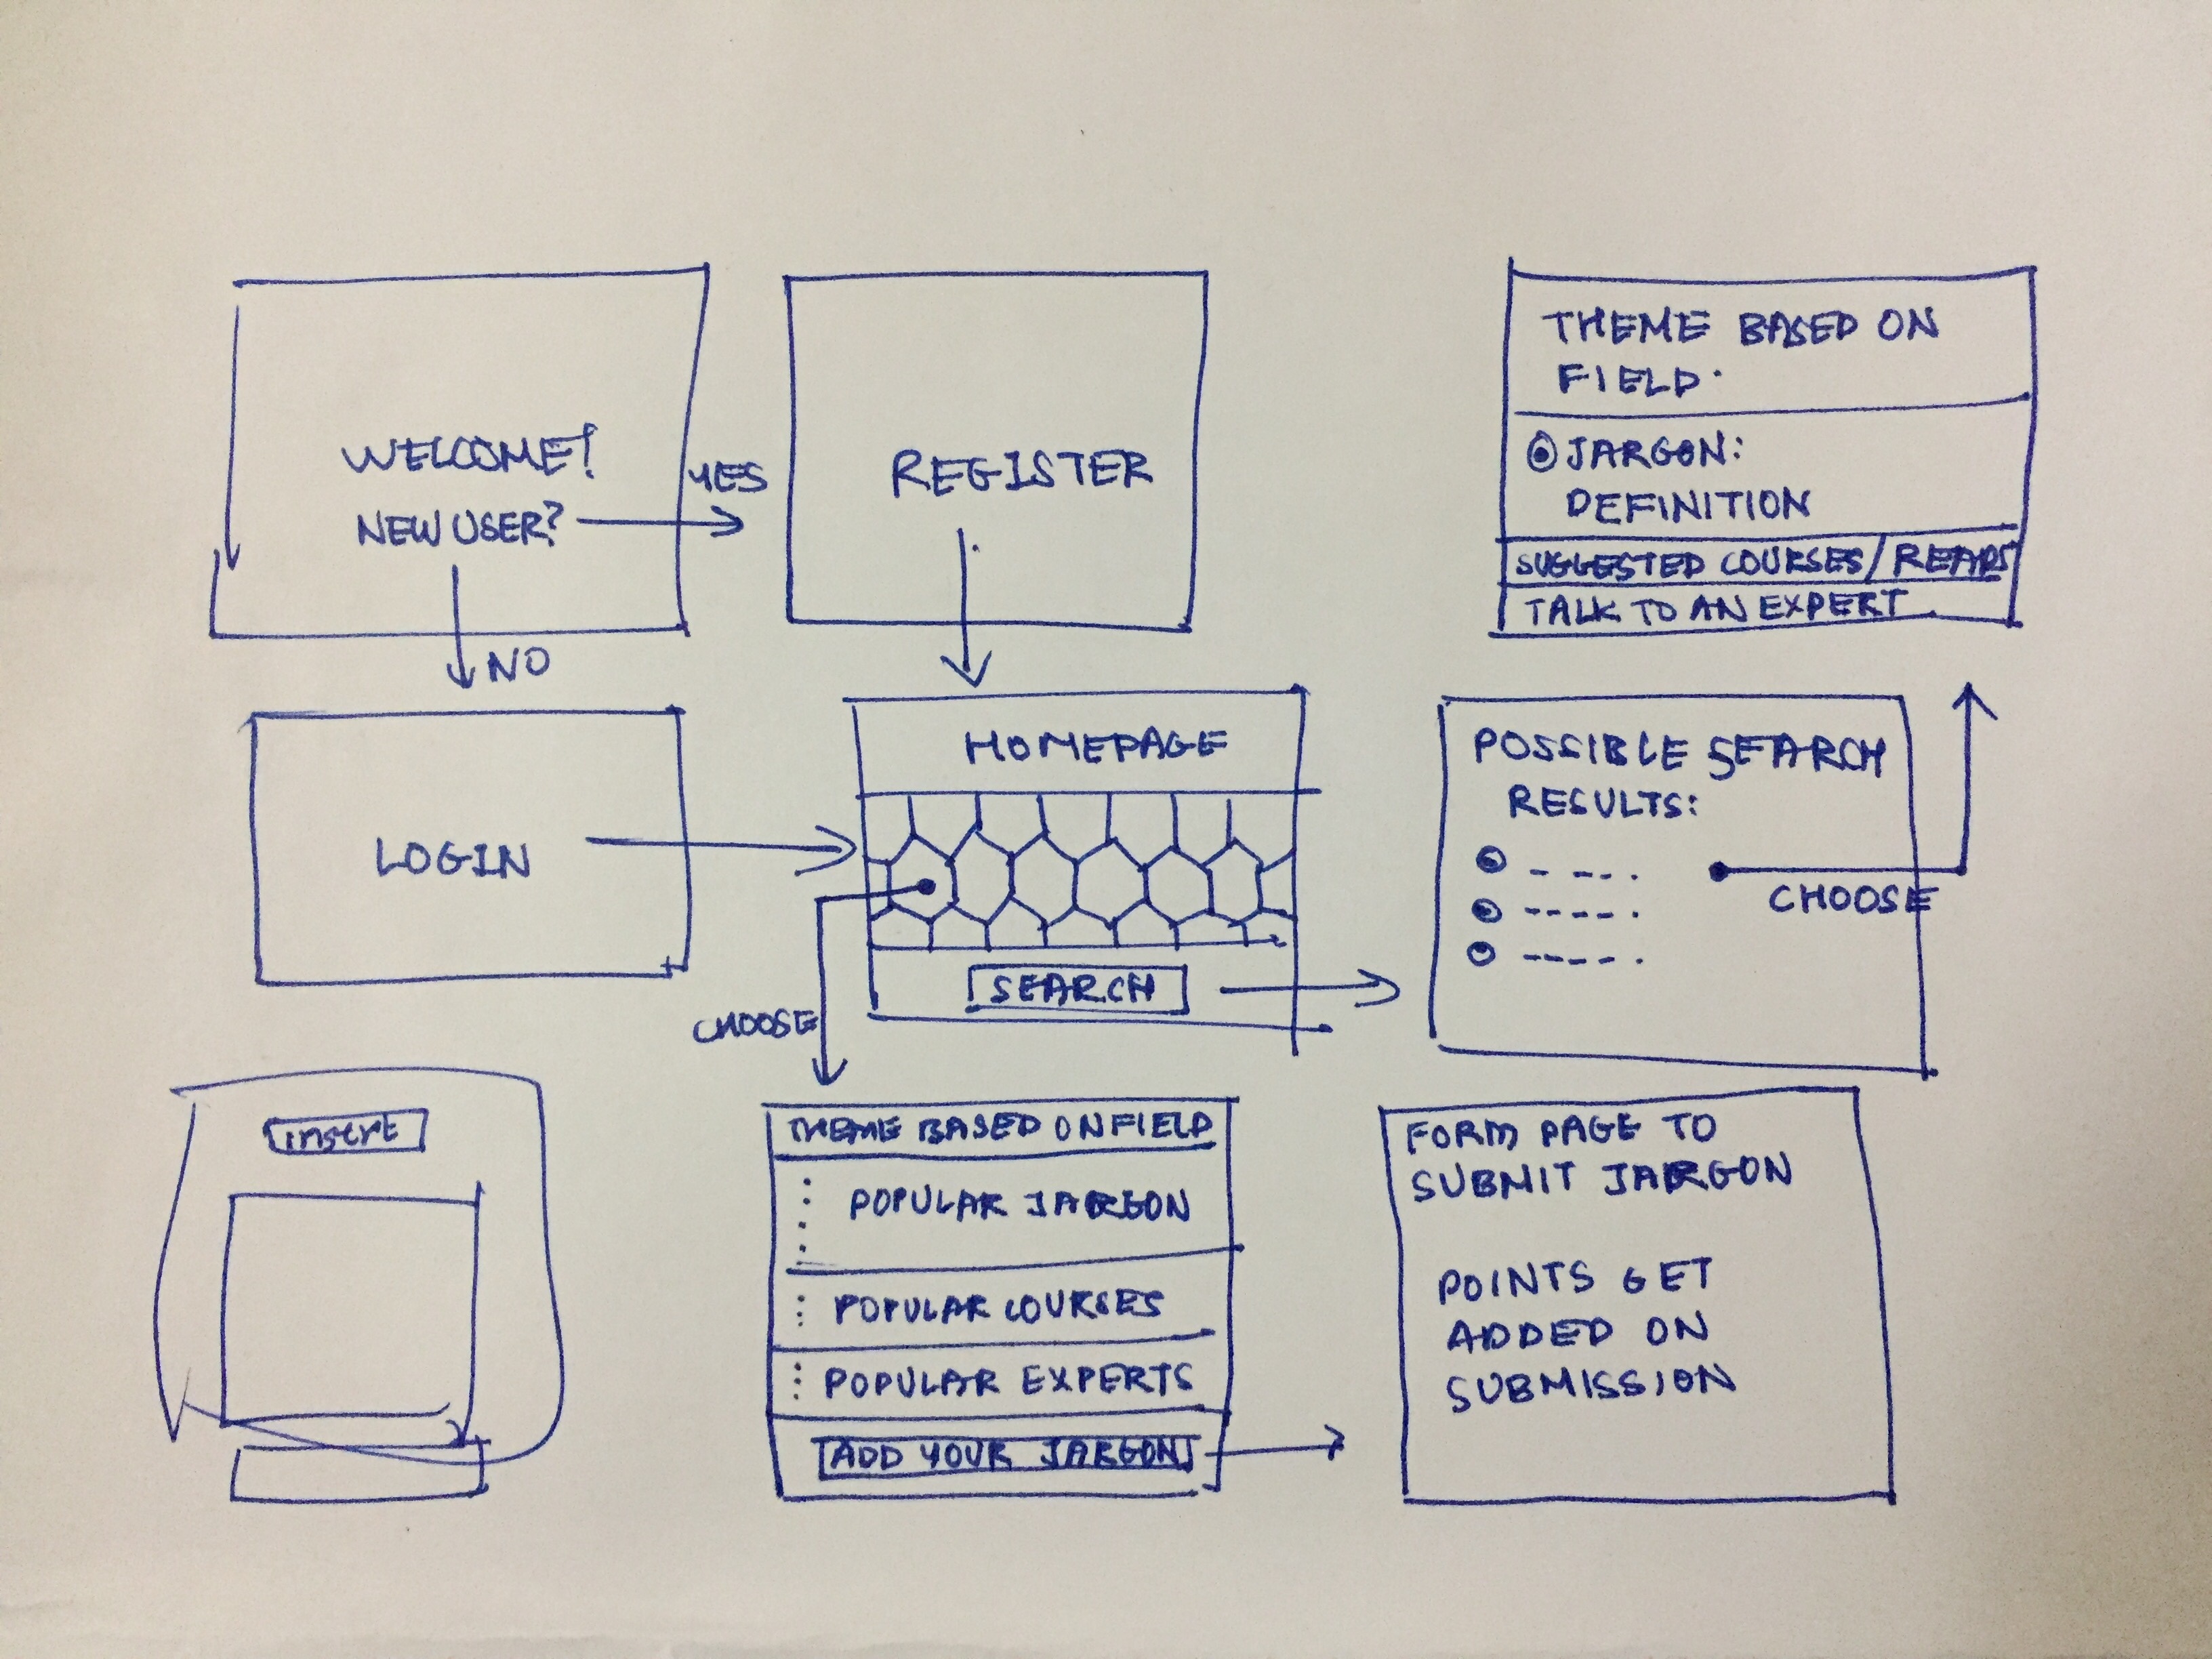 WELCOME!
NEW USER?
YES
NO
REGISTER
THEME BASED ON
FIELD.
JARGON:
DEFINITION
SUGGESTED COURSES/READS
TALK TO AN EXPERT
LOGIN
HOMEPAGE
SEARCH
CHOOSE
POSSIBLE SEARCH
RESULTS:
CHOOSE
insert
THEME BASED ON FIELD
POPULAR JARGON
POPULAR COURSES
POPULAR EXPERTS
ADD YOUR JARGON
FORM PAGE TO
SUBMIT JARGON
POINTS GET
ADDED ON
SUBMISSION